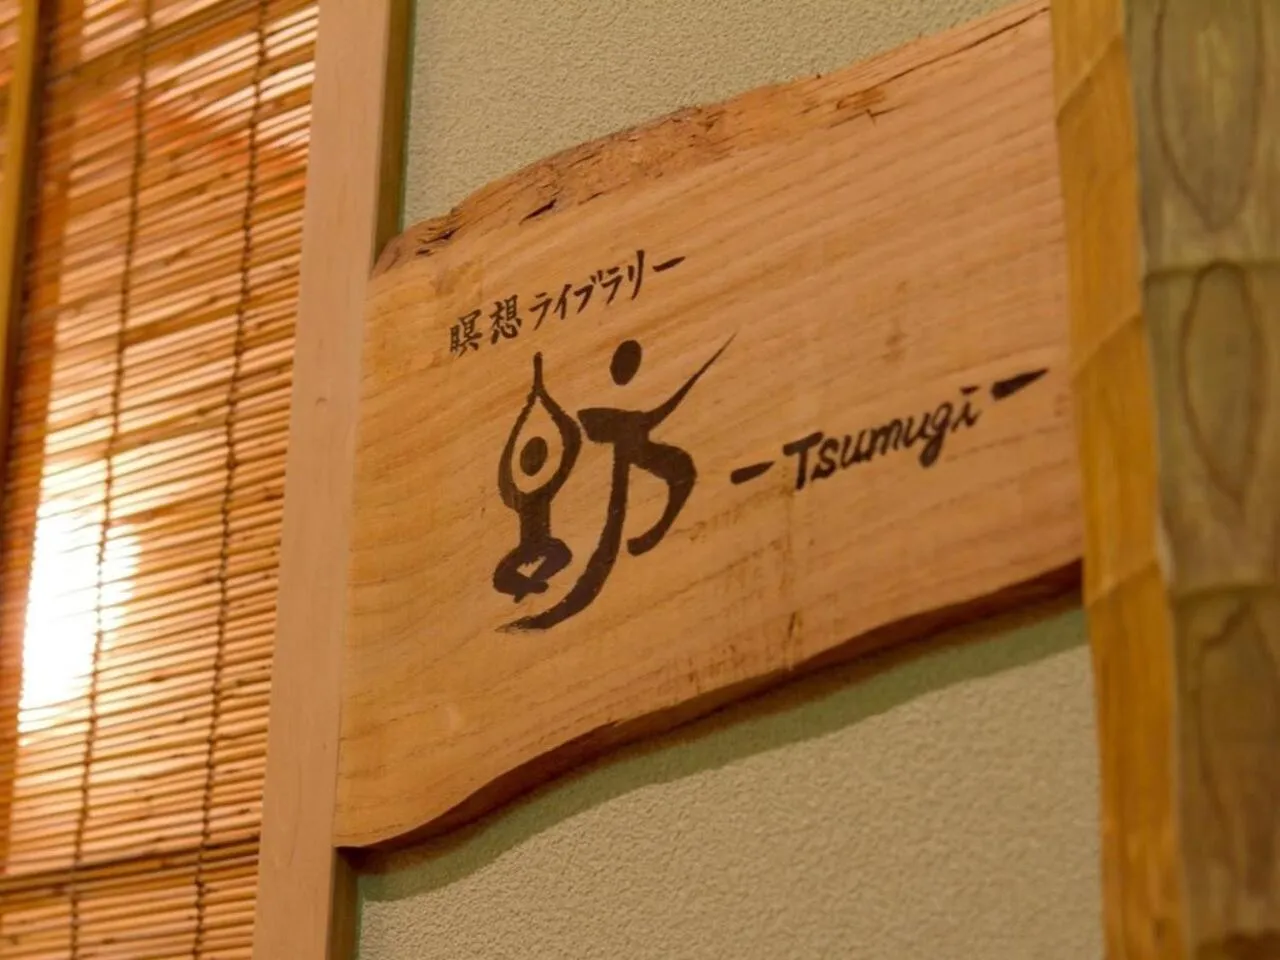 瞑想ライブラリー
紡 -Tsumugi-